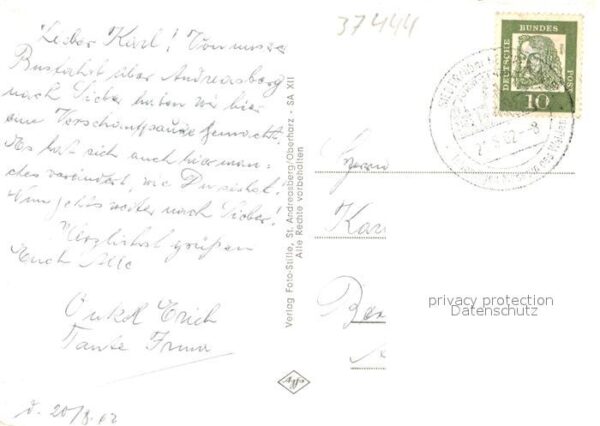 37444
Lieber Karl! Von unsrer
Busfahrt über Andreasberg
nach Sieber haben wir hier
eine Verschnaufpause gemacht!
Es hat sich auch hier man-
ches verändert, wie Du siehst!
Nun geht's weiter nach Sieber!
Herzlichst grüßen
Euch Alle
Onkel Erich
Tante Irma
d. 20/8. 62
Verlag Foto-Stille, St. Andreasberg/Oberharz · SA XII
Alte Rechte vorbehalten
Agfa
DEUTSCHE BUNDESPOST
10
62-8
Herrn
privacy protection
Datenschutz